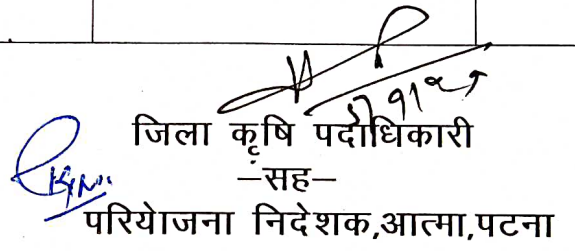 जिला कृषि पदाधिकारी
–सह–
परियोजना निदेशक,आत्मा,पटना